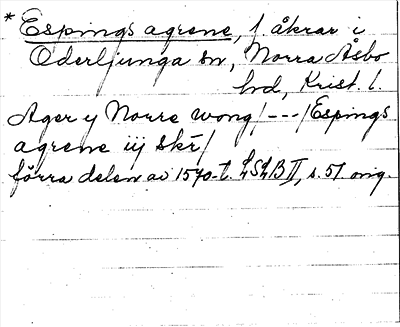 * Espings agrene, f åkrar i
Oderljunga sn, Norra Åsbo
hd, Krist. l.
Ager y Norre wong/---/Espings
agrene iij skr/
förra delen av 1570-t. LSLB II, s. 57 orig.